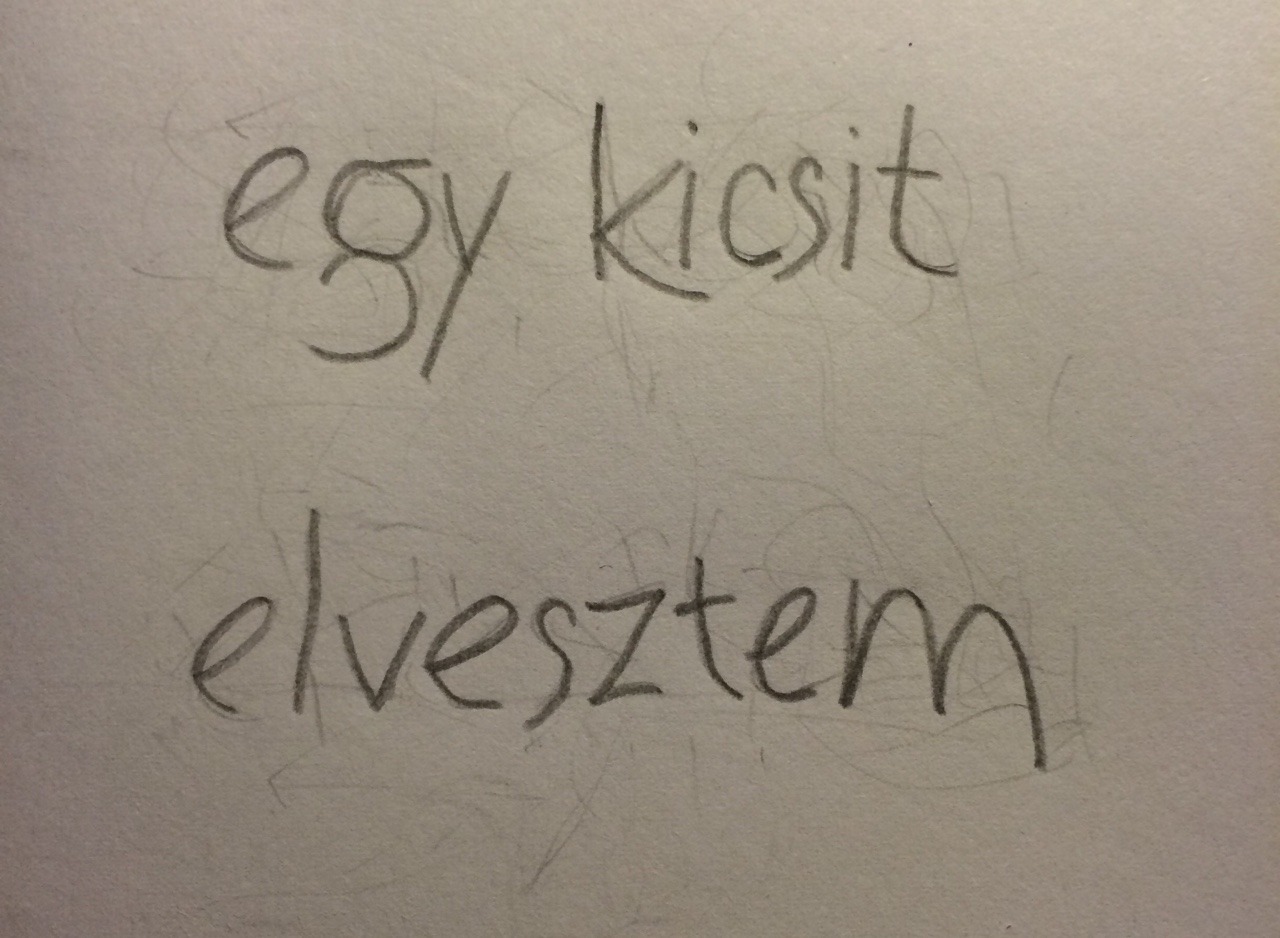 egy kicsit
elvesztem